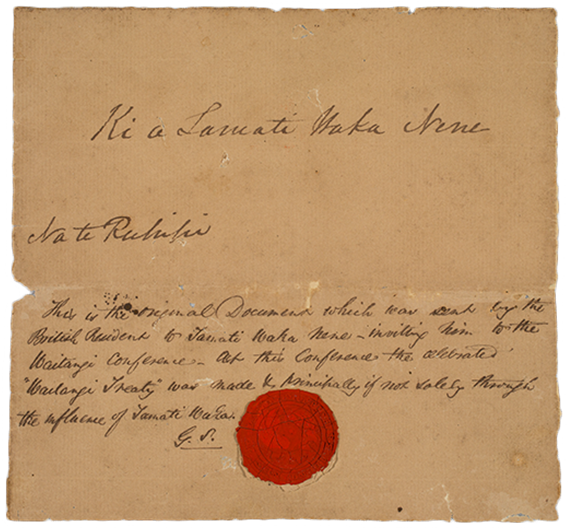 Ki a Tamati Waka Nene
Na te Puhipi
This is the original Document which was sent by the
British Resident to Tamati Waka Nene - inviting him to the
Waitangi Conference - At this Conference the celebrated
"Waitangi Treaty" was made & principally if not solely through
the influence of Tamati Waka.
G. S.